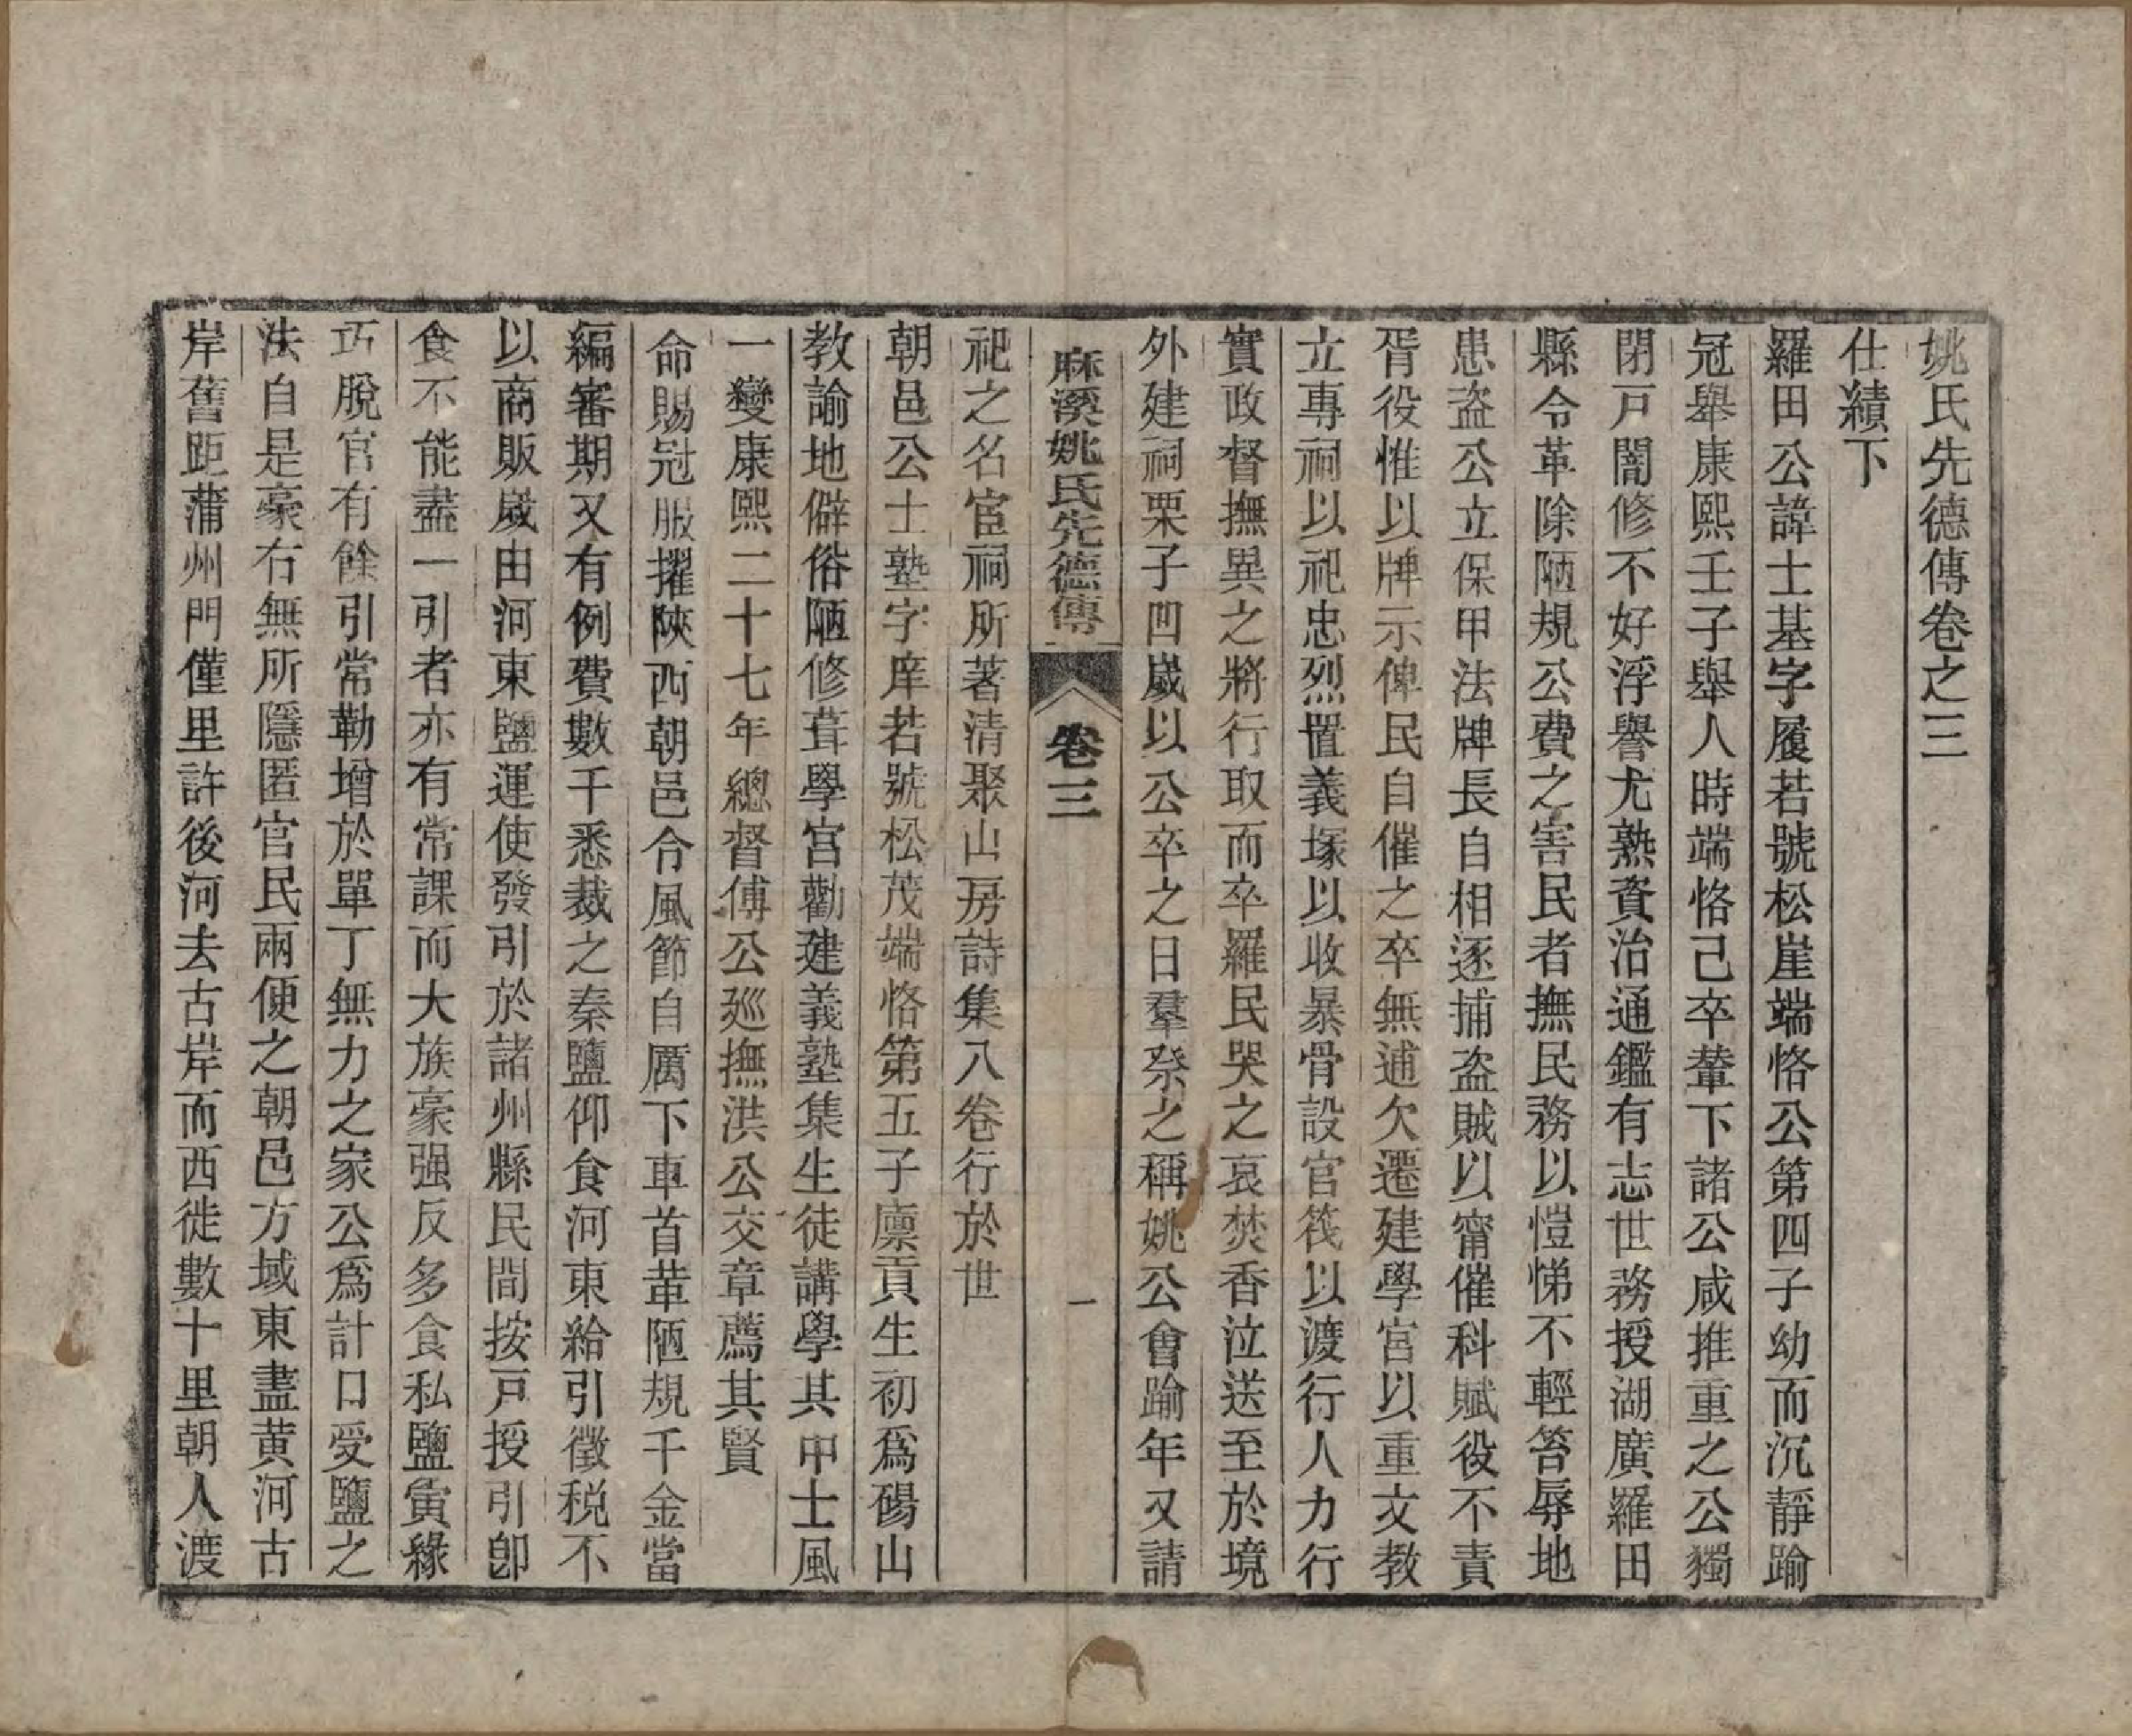 姚氏先德傳卷之三
仕績下
羅田公諱士基字履若號松崖端恪公第四子幼而沉靜踰
冠舉康熙壬子舉人時端恪己卒輦下諸公咸推重之公獨
閉戸闇修不好浮譽尤熟資治通鑑有志世務授湖廣羅田
縣令革除陋規公費之害民者撫民務以愷悌不輕笞辱地
患盜公立保甲法牌長自相逐捕盜賊以甯催科賦役不責
胥役惟以牌示俾民自催之卒無逋欠遷建學宮以重文教
立專祠以祀忠烈置義塚以收暴骨設官筏以渡行人力行
實政督撫異之將行取而卒羅民哭之哀焚香泣送至於境
外建祠栗子凹嵗以公卒之日羣祭之稱姚公會踰年又請
麻溪姚氏先德傳 卷三 一
祀之名宦祠所著清聚山房詩集八卷行於世
朝邑公士塾字庠若號松茂端恪第五子廪貢生初爲碭山
教諭地僻俗陋修葺學宮勸建義塾集生徒講學其中士風
一變康熙二十七年總督傅公廵撫洪公交章薦其賢
命賜冠服擢陝西朝邑令風節自厲下車首革陋規千金當
編審期又有例費數千悉裁之秦鹽仰食河東給引徵税不
以商販嵗由河東鹽運使發引於諸州縣民間按戸授引卽
食不能盡一引者亦有常課而大族豪强反多食私鹽寅緣
巧脫官有餘引常勒增於單丁無力之家公爲計口受鹽之
法自是豪右無所隱匿官民兩便之朝邑方域東盡黄河古
岸舊距蒲州門僅里許後河去古岸而西徙數十里朝人渡